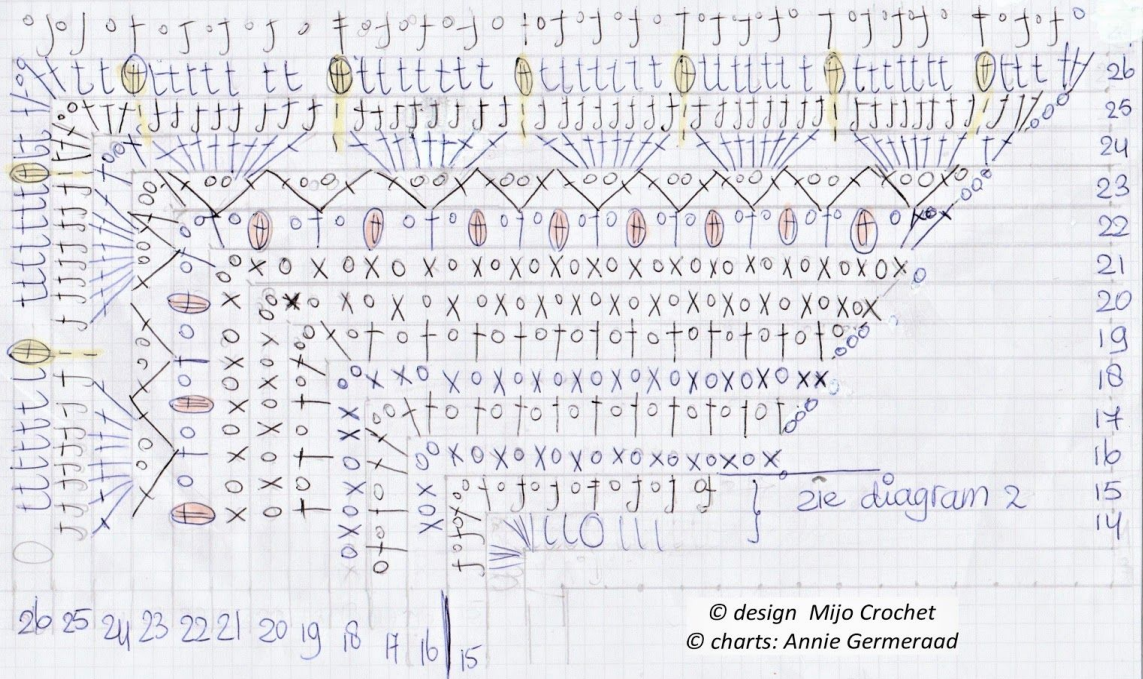 26
25
24
23
22
21
20
19
18
17
16
15
zie diagram 2
14
26 25 24 23 22 21 20 19 18 17 16 15
© design Mijo Crochet
© charts: Annie Germeraad